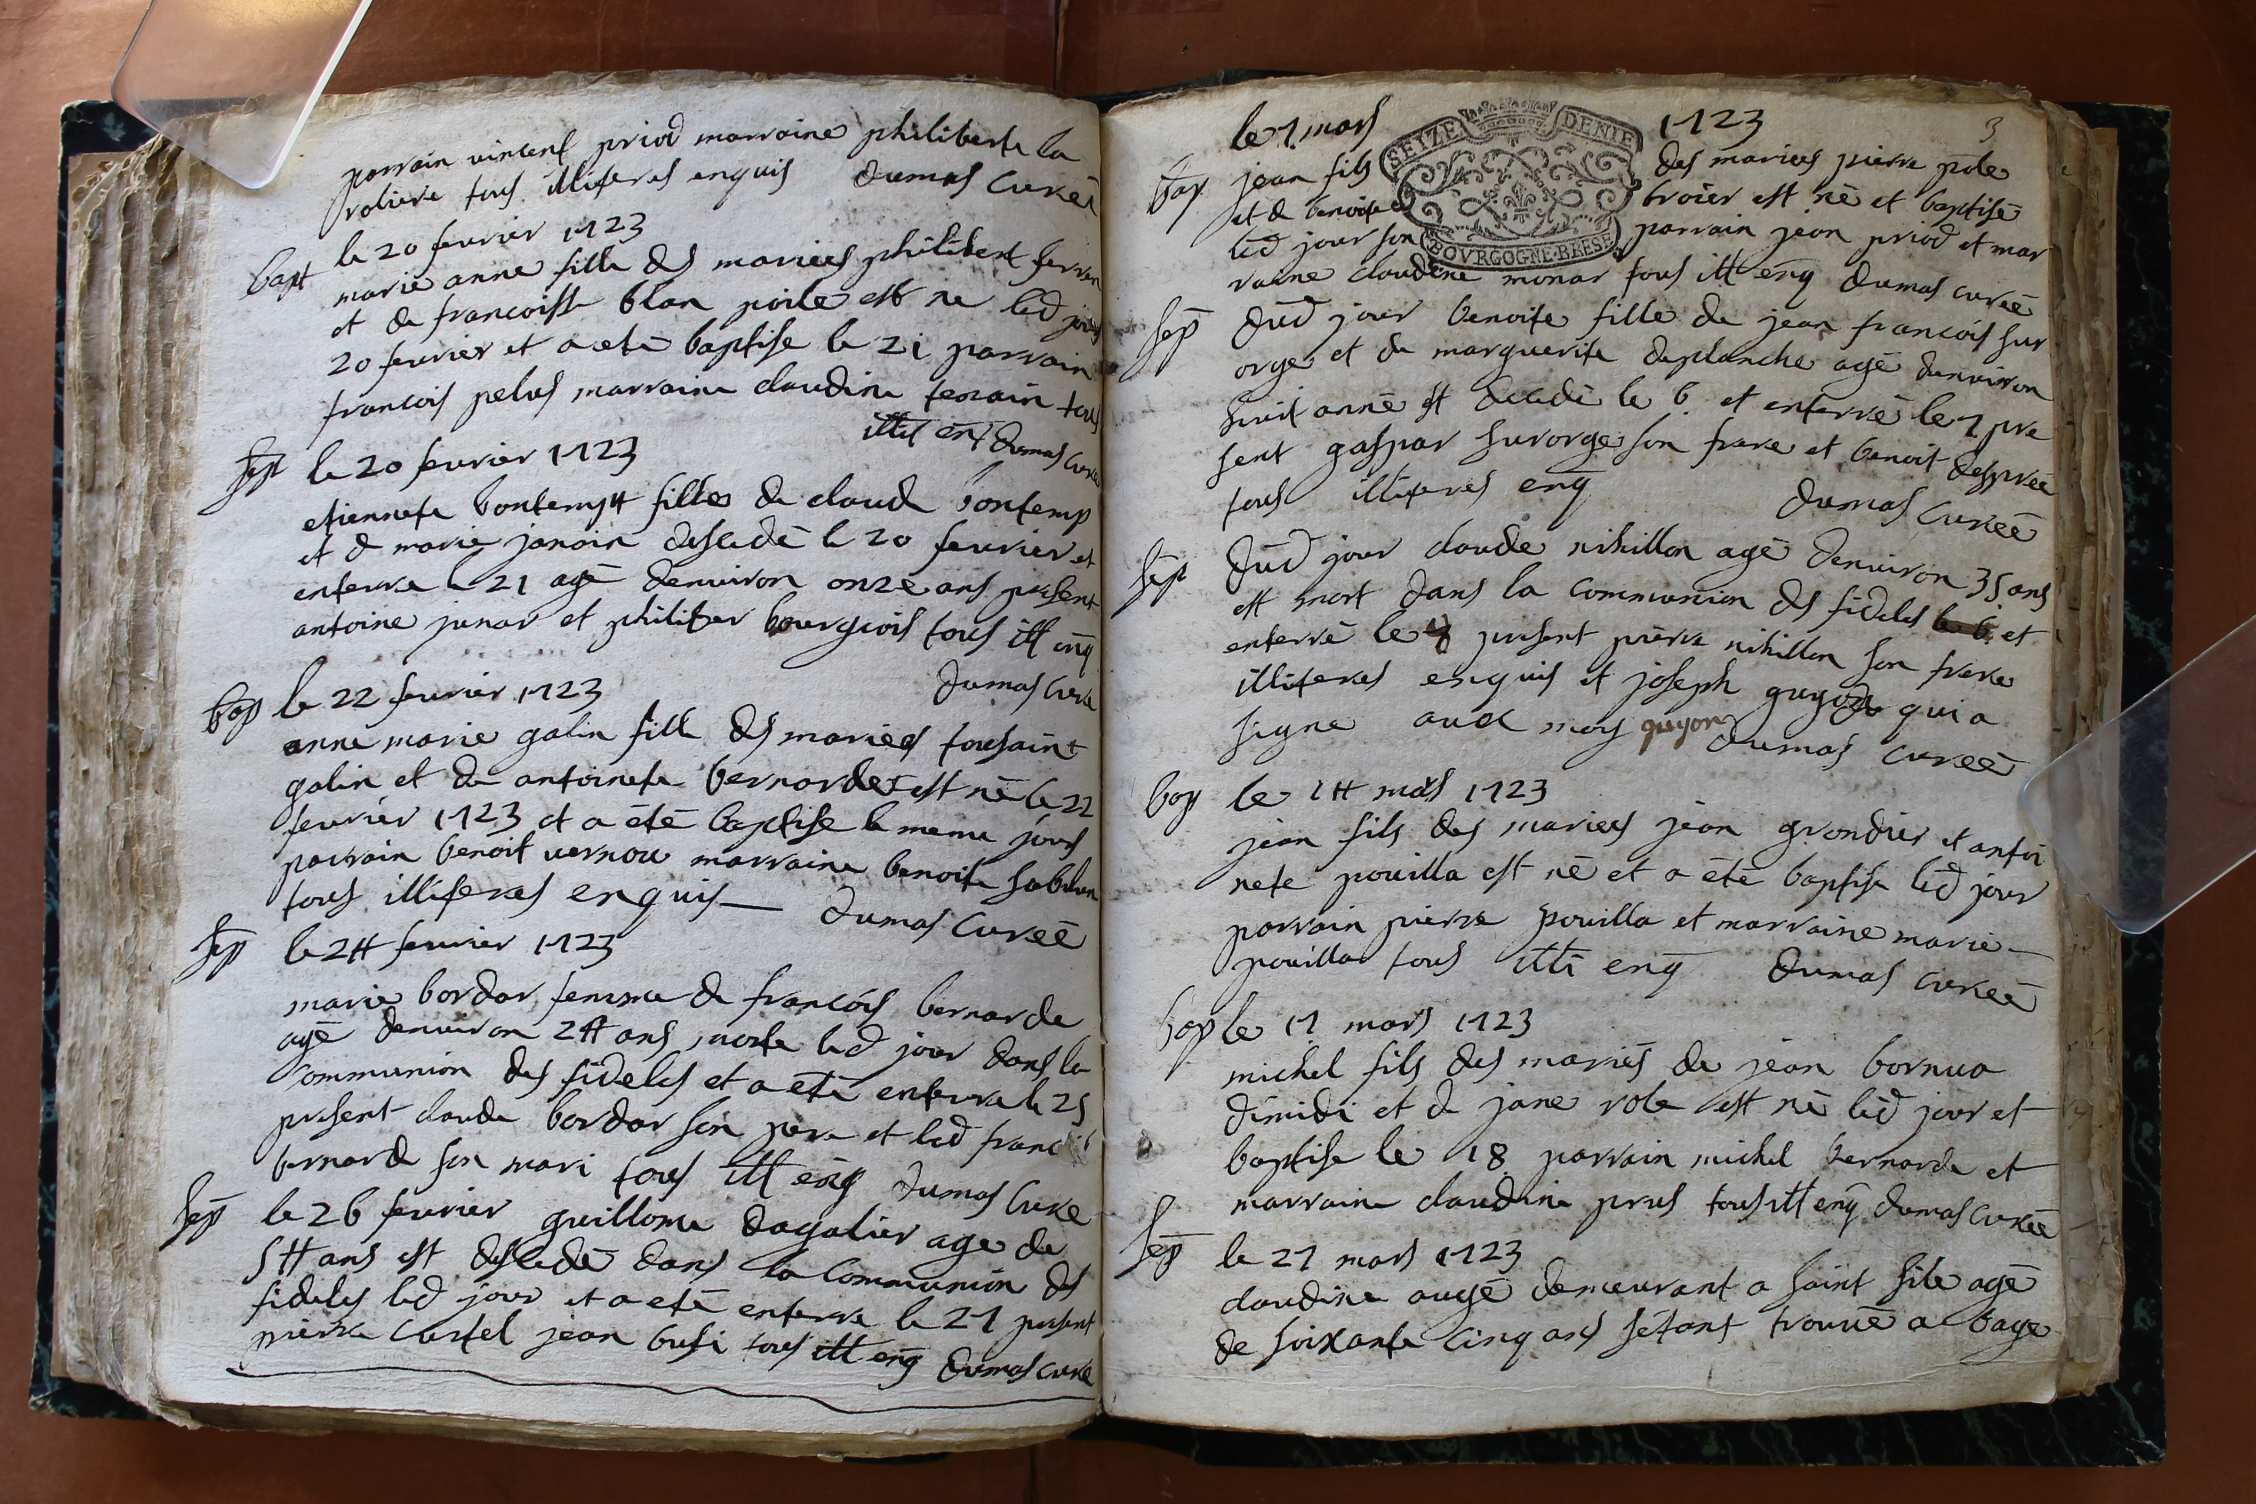 parrain vincent priod marraine philiberte la
roliere tous illiteres enquis dumas Cureé
bapt le 20 feurier 1723
marie anne fille des mariees philibert ferran
et de francoisse blan poile est ne led jour
20 feurier et a eté baptise le 21 parrain
francois pelus marraine claudine terrain tous
illit enq dumas cure
sep le 20 feurier 1723
etiennete bontempt fille de claude bontemp
et de marie janain desedé le 20 feurier et
enterre le 21 agé denuiron onze ans present
antoine junar et philiber bourgiois tous ill enq
dumas Cure
bap le 22 feurier 1723
anne marie galin fille des mariees tousaint
galin et de antoinete bernarde est né le 22
feurier 1723 et a été baptise le meme jour
parrain benoit uernou marraine benoite sablon
tous illiteres enquis dumas Cureé
sep le 24 feurier 1723
marie bordar femme de francois bernarde
agé denuiron 24 ans morte led jour dans la
communion des fideles et a eté enterra le 25
present claude bordar son pere et led francois
bernarde son mari tous ill enq dumas Cure
sep le 26 feurier guillome dagalier age de
54 ans est desedé dans la Communion des
fideles led jour et a eté enterre le 27 present
pierre Curtel jean busi tous ill enq dumas cure
le 7 mars 1723 3
SEIZE DENIE
BOURGOGNE·BRESE
bap jean fils des mariees pierre pole
et de benoite broier est né et baptisé
led jour son parrain jean priod et mar
raine claudine monar tous ill enq dumas cureé
sep dud jour benoite fille de jean francois sur
orge et de marguerite deplanche agé denuiron
huit anné et decedé le 6 et enterré le 7 pre
sent gaspar surorge son frere et benoit despreé
tous illiteres enq dumas Cureé
sep dud jour claude nihillon agé denuiron 35 ans
est mort dans la communion des fideles le 6 et
enterré le 8 present pierre nihillon son frere
illiteres enquis et joseph guyon qui a
signe auec moy guyon dumas cureé
bap le 14 mars 1723
jean fils des mariees jean grondier et antoi
nete pouilla est né et a été baptise led jour
parrain pierre pouilla et marraine marie
pouilla tous illi enq dumas cureé
bap le 17 mars 1723
michel fils des mariés de jean bornua
dimidi et de jane role est né led jour et
baptise le 18 parrain michel bernarde et
marraine claudine prus tous ill enq dumas cureé
sep le 27 mars 1723
claudine augé demeurant a saint sile agé
de soixante Cinq ans sétant trouué a bage